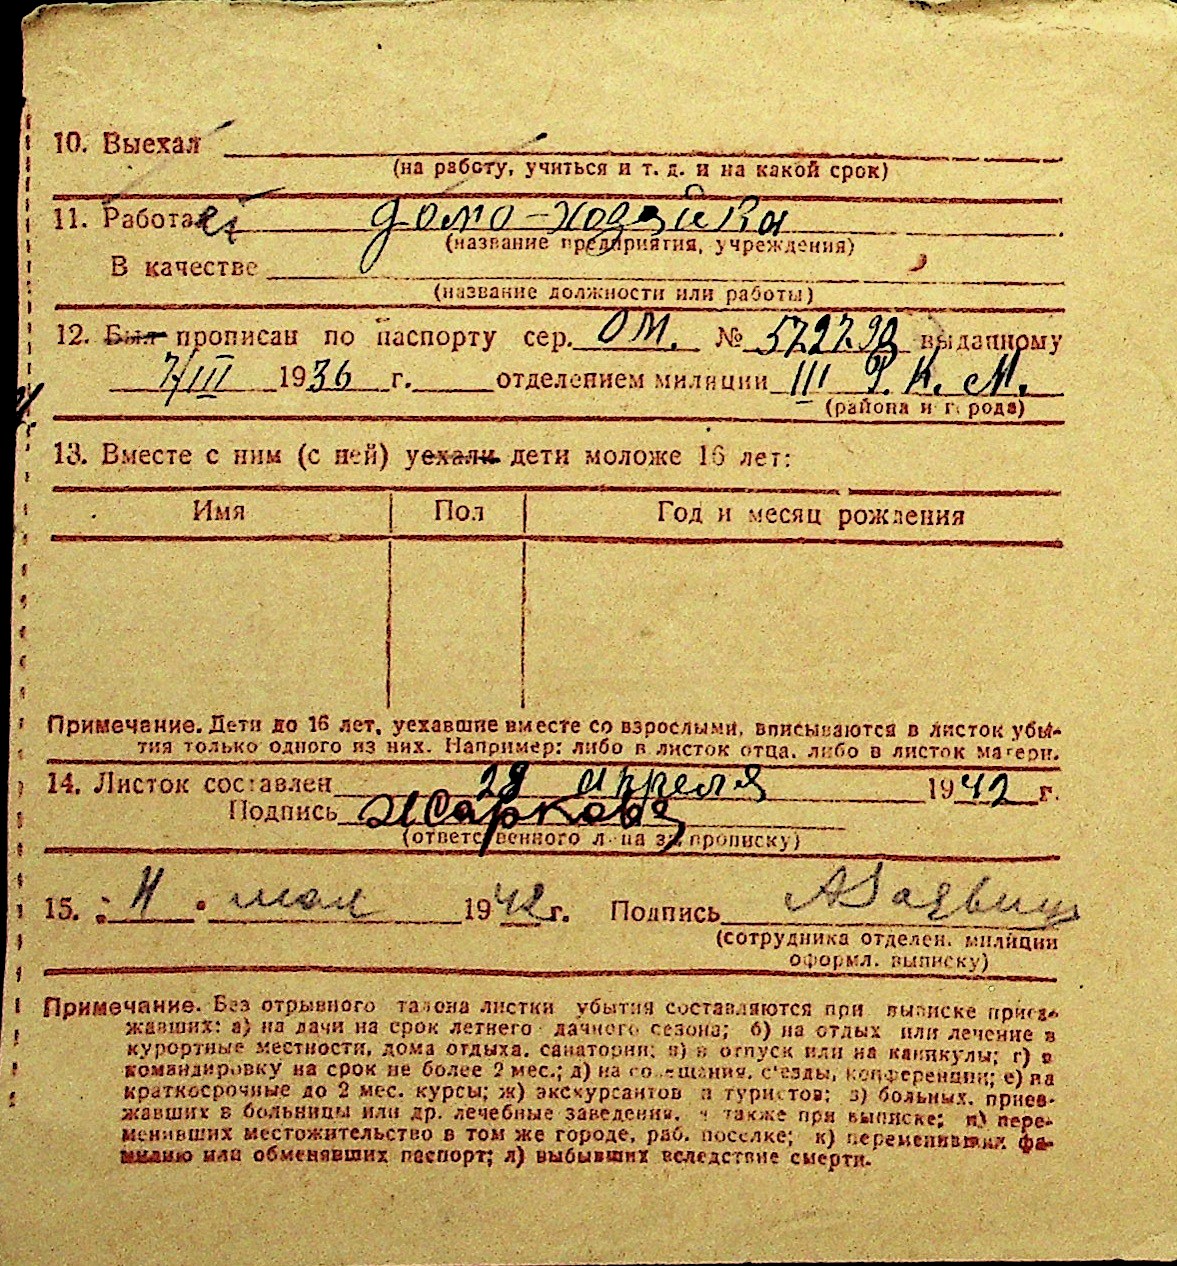 10. Выехал
(на работу, учиться и т. д. и на какой срок)
11. Работает домо-хозяйка
(название предприятия, учреждения)
В качестве
(название должности или работы)
12. Был прописан по паспорту сер. ОМ. № 572790 выданному
7/III 1936 г. отделением милиции III Р. К. М.
(района и города)
13. Вместе с ним (с ней) уехали дети моложе 16 лет:
Имя Пол Год и месяц рождения
Примечание. Дети до 16 лет, уехавшие вместе со взрослыми, вписываются в листок убы-
тия только одного из них. Например: либо в листок отца, либо в листок матери.
14. Листок составлен 28 апреля 1942 г.
Подпись
(ответственного лица за прописку)
15. "11" мая 1942 г. Подпись
(сотрудника отделен. милиции
оформл. выписку)
Примечание. Без отрывного талона листки убытия составляются при выписке приез-
жавших: а) на дачи на срок летнего дачного сезона; б) на отдых или лечение в
курортные местности, дома отдыха, санатории; в) в отпуск или на каникулы; г) в
командировку на срок не более 2 мес.; д) на совещания, с'езды, конференции; е) на
краткосрочные до 2 мес. курсы; ж) экскурсантов и туристов; з) больных, приез-
жавших в больницы или др. лечебные заведения, а также при выписке; и) пере-
менивших местожительство в том же городе, раб. поселке; к) переменивших фа-
милию или обменявших паспорт; л) выбывших вследствие смерти.